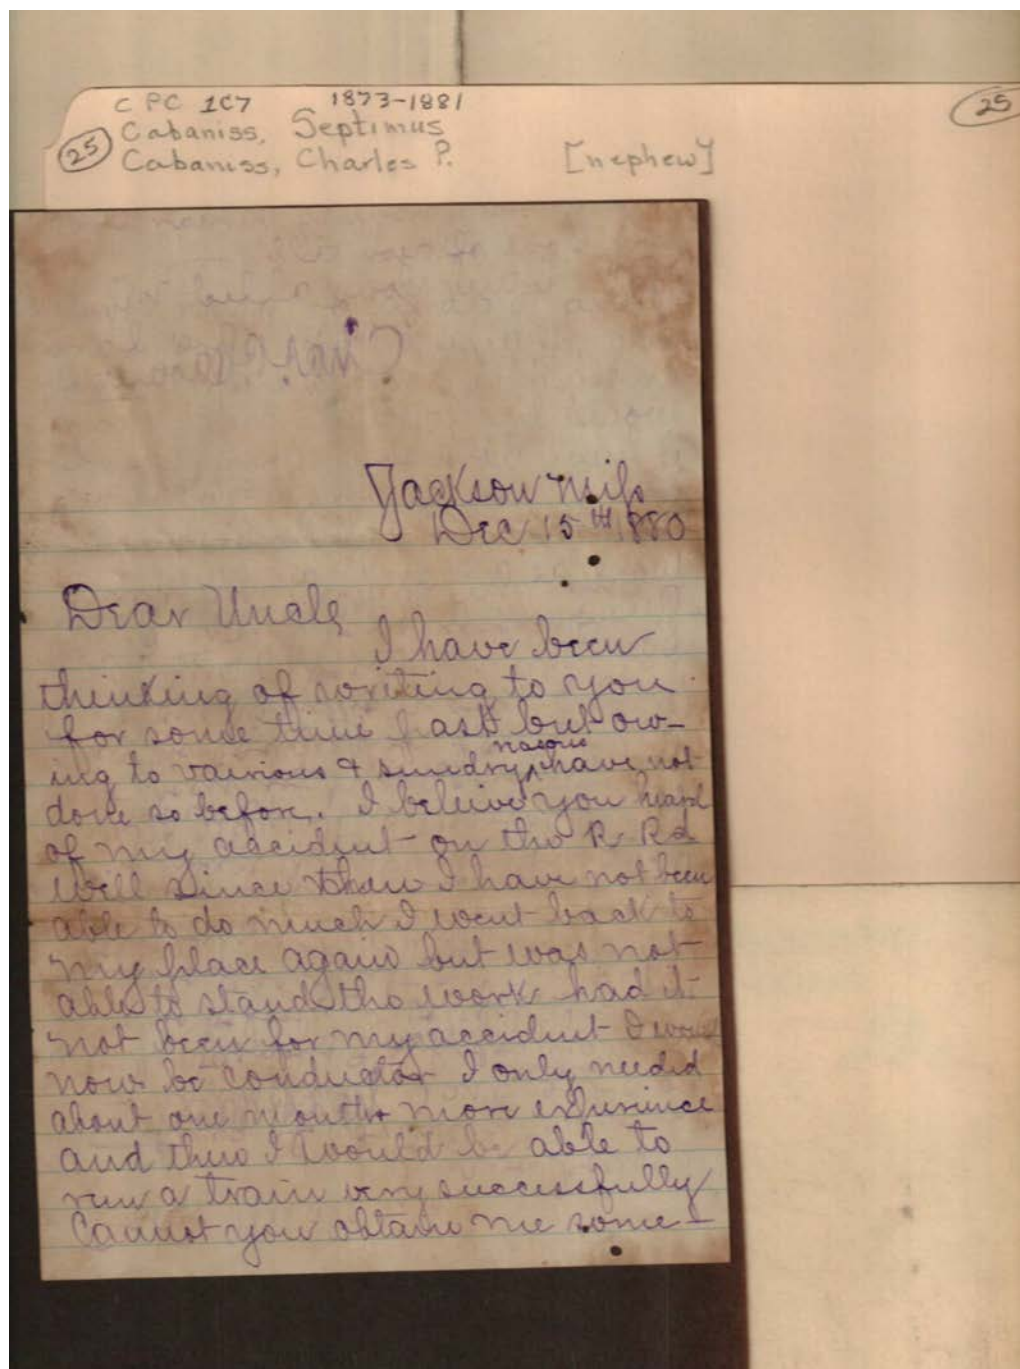 C PC 1C7 1873-1881
Cabaniss, Septimus
25
Cabaniss, Charles P. [nephew]
25
Jackson Miss
Dec 15th 1880
Dear Uncle,
I have been
thinking of writing to you
for some time past but ow-
ing to vairious & sundry have not
done so before. I beleive you heard
of my accident on the R Rd
Well since then I have not been
able to do much I went back to
my place again but was not
able to stand the work had it
not been for my accident I would
now be conductor I only needed
about one month more experience
and then I would be able to
run a train very successfully
Cannot you obtain me some-